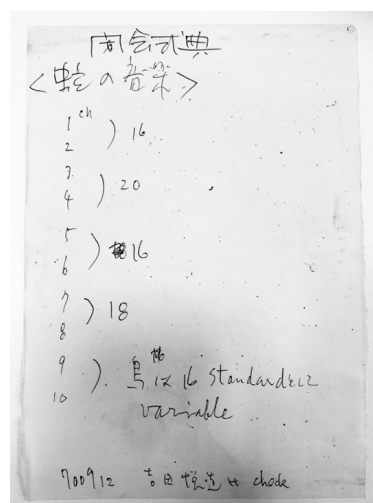 閉会式典
<蛇の音楽>
1 ch
2 ) 16
3
4 ) 20
5
6 ) 16
7
8 ) 18
9
10 ). 鳥 は 16 standardに
variable
700912 吉田 check